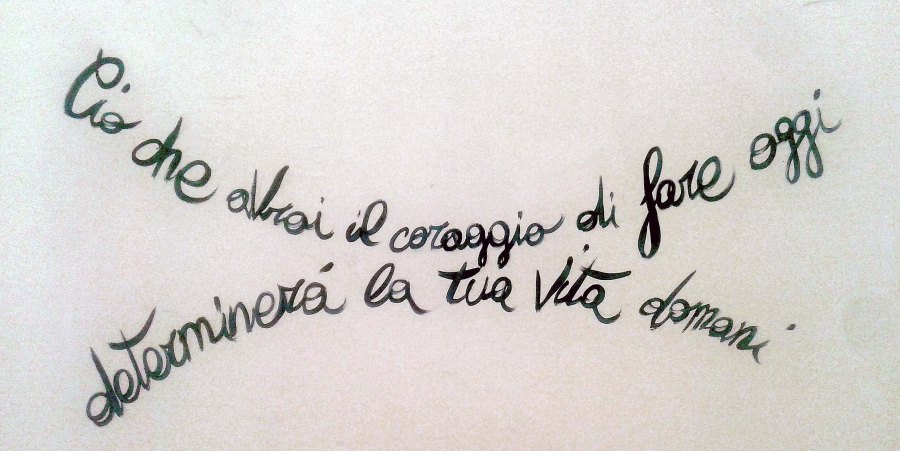 Ciò che avrai il coraggio di fare oggi
determinerá la tua vita domani